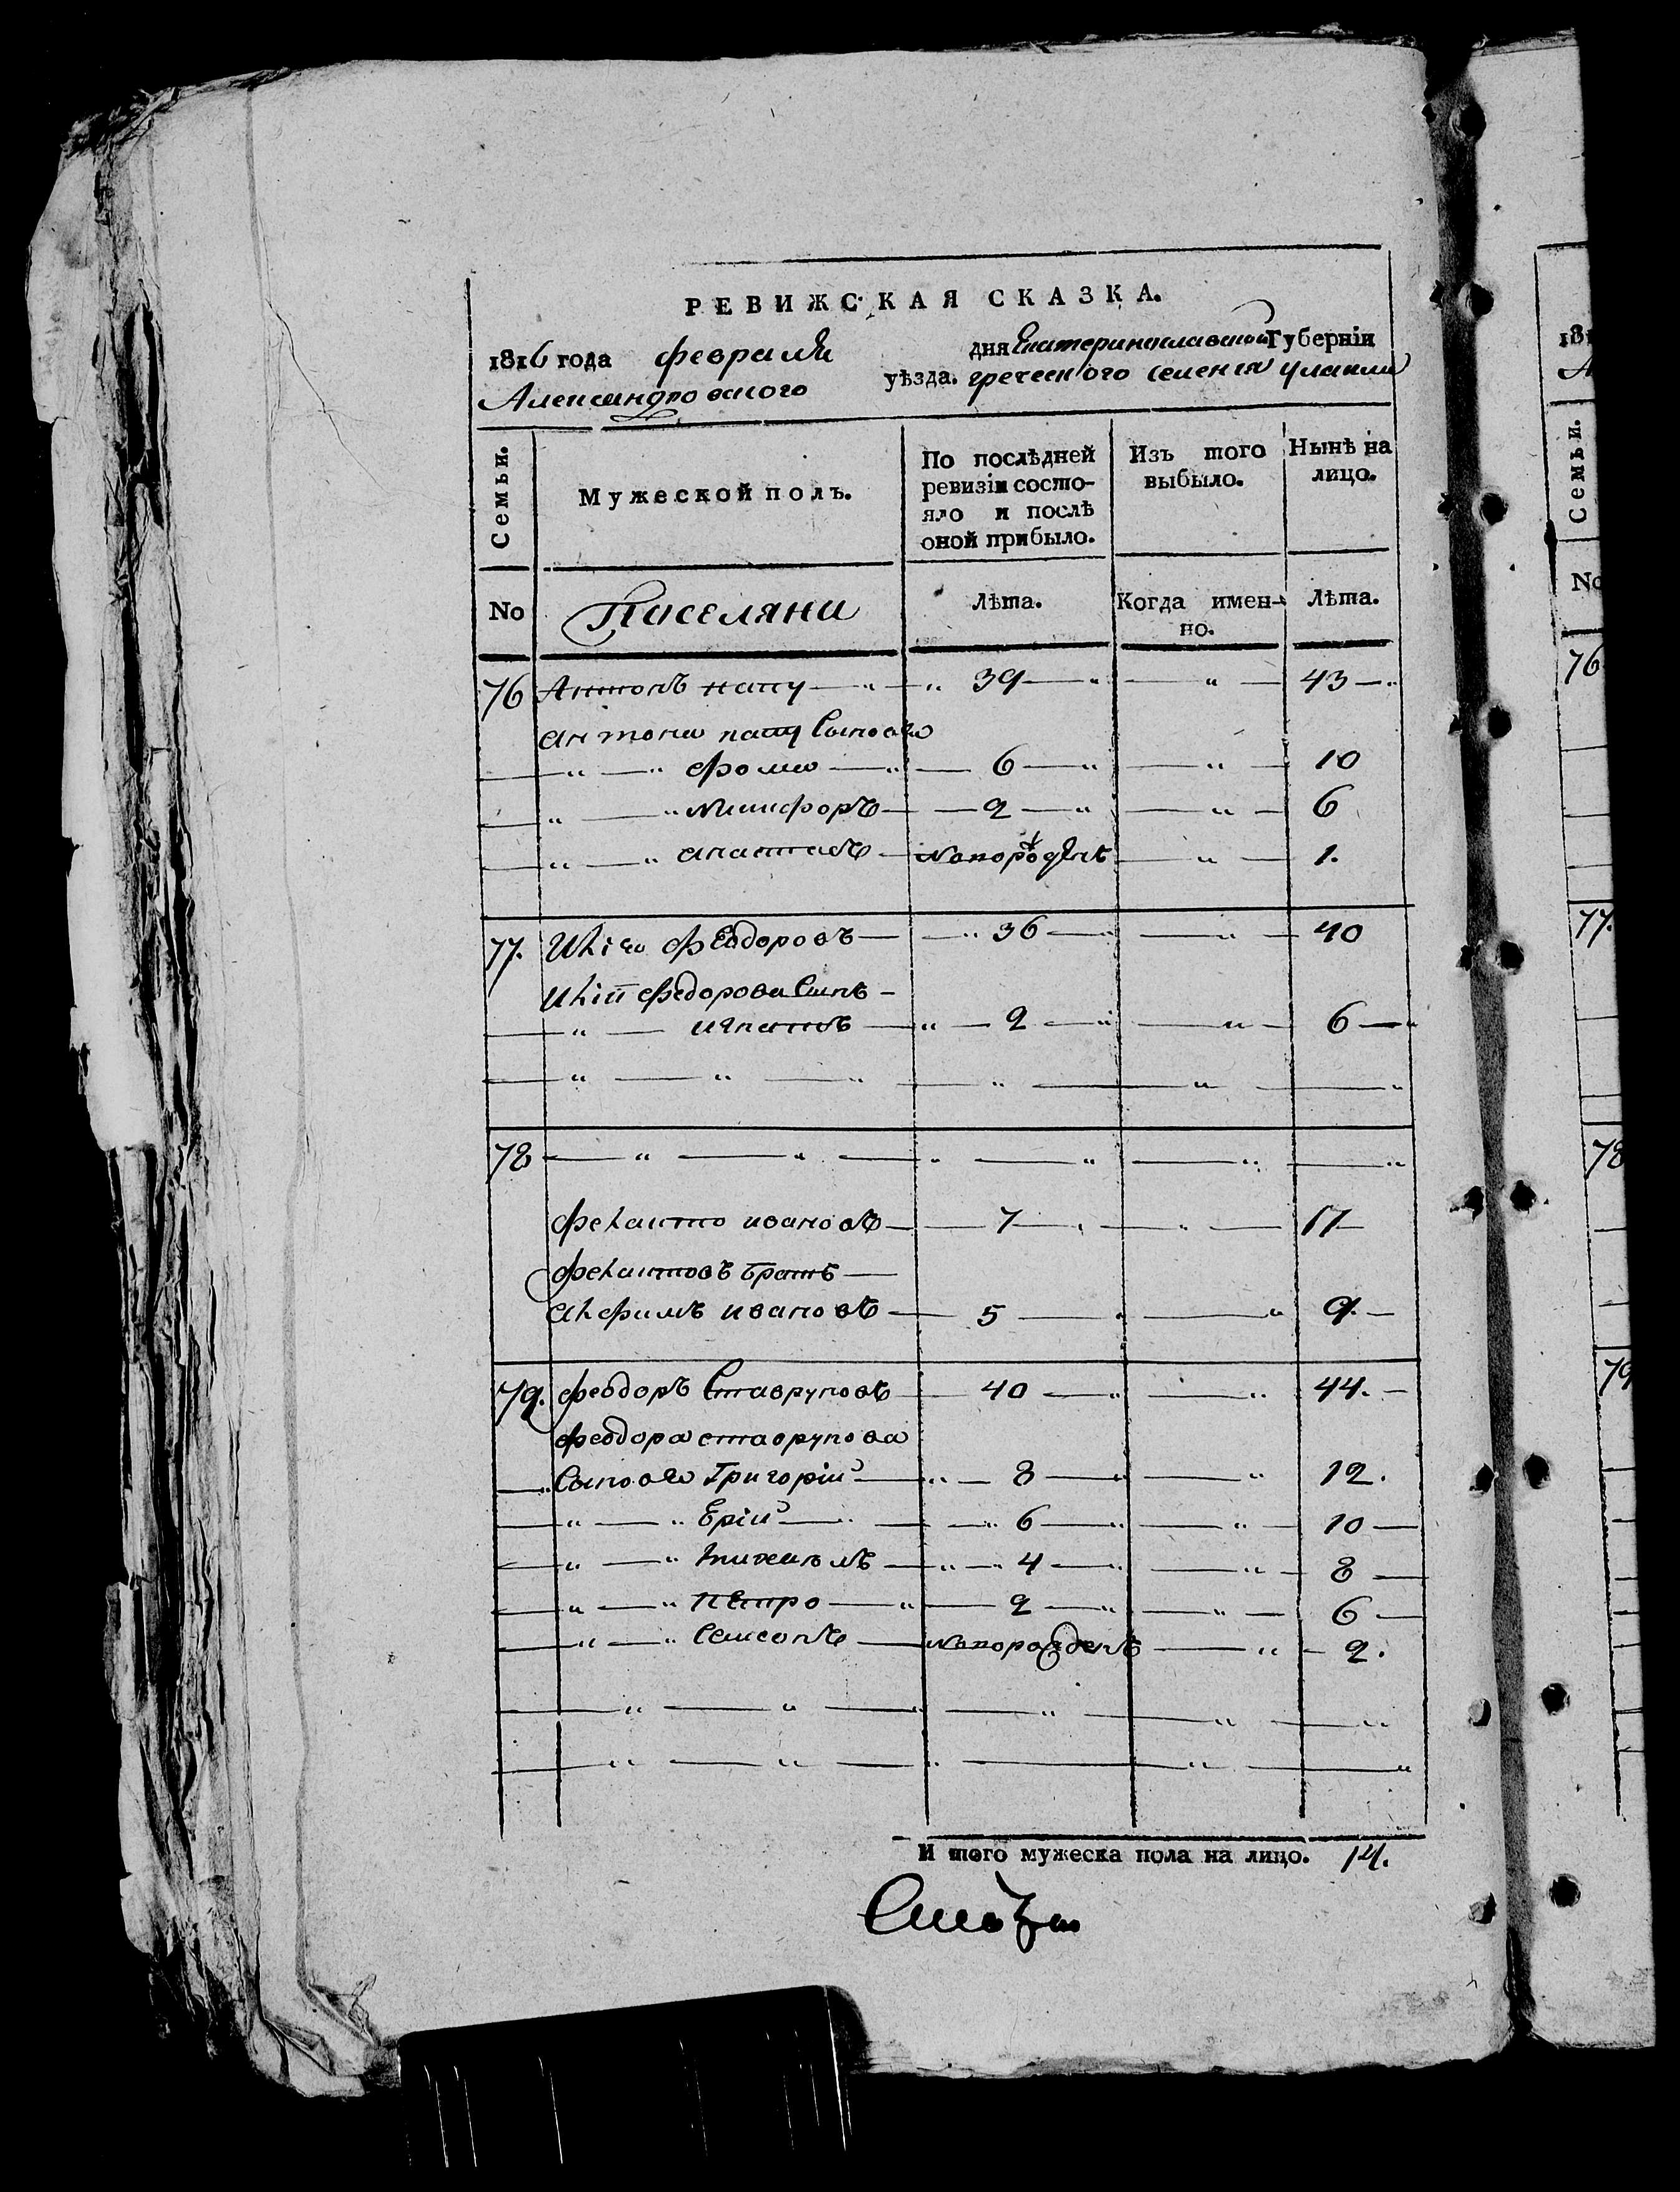 РЕВИЖСКАЯ СКАЗКА.
1816 года февраля дня Екатеринославской Губерніи
Александровского уѣзда. греческого селения улаклы
Семьи. Мужеской полъ. По послѣдней ревизіи состояло и послѣ оной прибыло. Изъ того выбыло. Нынѣ на лицо.
No Поселяни Лѣта. Когда именно. Лѣта.
76 Антонъ папу 39 43
антона папу Сыновя
фома 6 10
Никифоръ 2 6
анастасъ Новорожденъ 1.
77. феодоровъ 36 40
федорова Сынъ
игнатъ 2 6
78
иванов 7 11
братъ
ивановъ 5 9.
79. феодоръ Ставруповъ 40 44.
феодора ставрупова
Сыновя Григорій 8 12.
Ерій 6 10
4 8
Петро 2 6
Семсонъ Новорожденъ 2.
И того мужеска пола на лицо. 14.
1816
А
Семьи.
No
76
77.
78
79